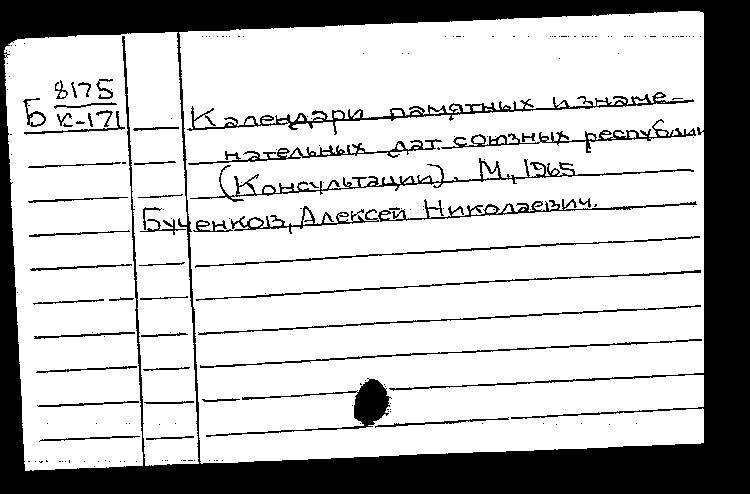 8175
Б К-171
Календари памятных и знаме-
нательных дат союзных республик
(Консультации). М., 1965
Бученков, Алексей Николаевич.